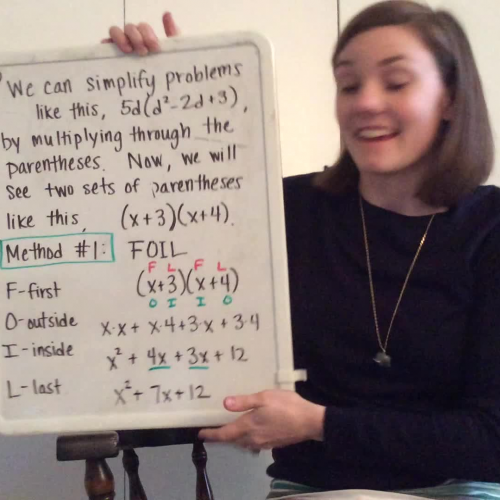 We can simplify problems
like this, 5d(d²-2d+3),
by multiplying through the
parentheses. Now, we will
see two sets of parentheses
like this, (x+3)(x+4).
Method #1: FOIL
F L F L
F-first (x+3)(x+4)
O I I O
O-outside x·x + x·4+3·x + 3·4
I-inside x² + 4x + 3x + 12
L-last x² + 7x + 12